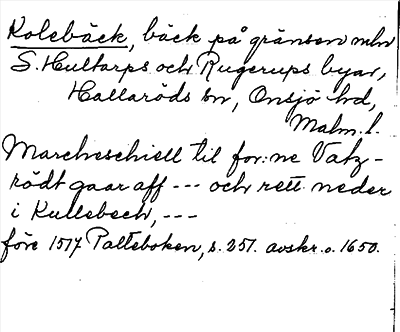 Kolebäck, bäck på gränsen mln
S. Hultarps och Rugerups byar,
Hallaröds sn, Onsjö hd,
Malm. l.
Marcheschiell til for:ne Vatz-
rödt gaar aff --- och rett neder
i Kullebech, ---
före 1517 Palteboken, s. 251. avskr. o. 1650.